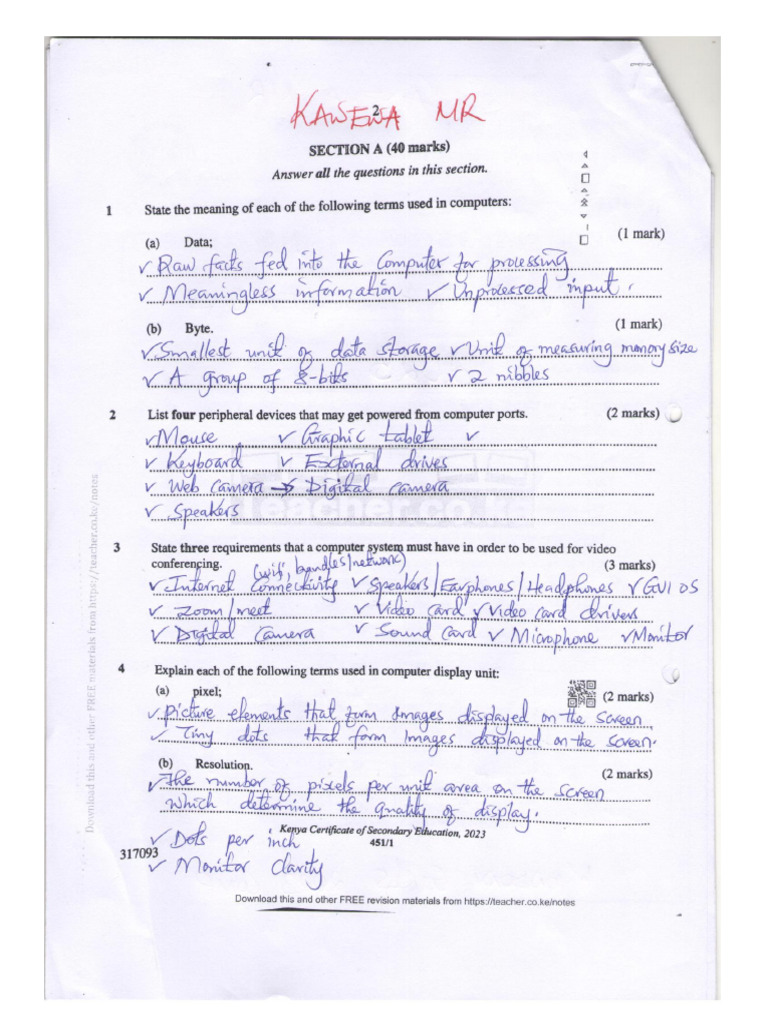 KAWEWA MR
2
SECTION A (40 marks)
Answer all the questions in this section.
1 State the meaning of each of the following terms used in computers:
(a) Data; (1 mark)
✓ Raw facts fed into the Computer for processing
✓ Meaningless information ✓ Unprocessed input.
(b) Byte. (1 mark)
✓ Smallest unit of data storage ✓ Unit of measuring memory size
✓ A group of 8-bits ✓ 2 nibbles
2 List four peripheral devices that may get powered from computer ports. (2 marks)
✓ Mouse ✓ Graphic tablet ✓
✓ Keyboard ✓ External drives
✓ Web camera → Digital camera
✓ Speakers
teacher.co.ke
3 State three requirements that a computer system must have in order to be used for video
conferencing. (3 marks)
(wifi, bundles/network)
✓ Internet connectivity ✓ Speakers/Earphones/Headphones ✓ GUI OS
✓ Zoom/meet ✓ Video card ✓ Video card drivers
✓ Digital Camera ✓ Sound card ✓ Microphone ✓ Monitor
4 Explain each of the following terms used in computer display unit:
(a) pixel; (2 marks)
✓ Picture elements that form images displayed on the screen
✓ Tiny dots that form images displayed on the screen.
(b) Resolution. (2 marks)
✓ The number of pixels per unit area on the screen
which determine the quality of display.
✓ Dots per inch
Kenya Certificate of Secondary Education, 2023
451/1
317093
✓ Monitor clarity
Download this and other FREE revision materials from https://teacher.co.ke/notes
Download this and other FREE materials from https://teacher.co.ke/notes